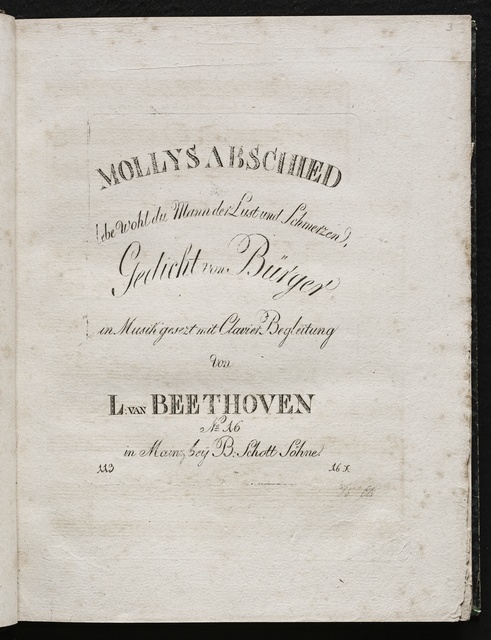 3
MOLLYS ABSCHIED
Lebe wohl du Mann der Lust und Schmerzen).
Gedicht von Bürger
in Musik gesezt mit Clavier Begleitung
von
L: VAN BEETHOVEN
No 16
in Mainz bey B: Schott Söhne
113 16 x.